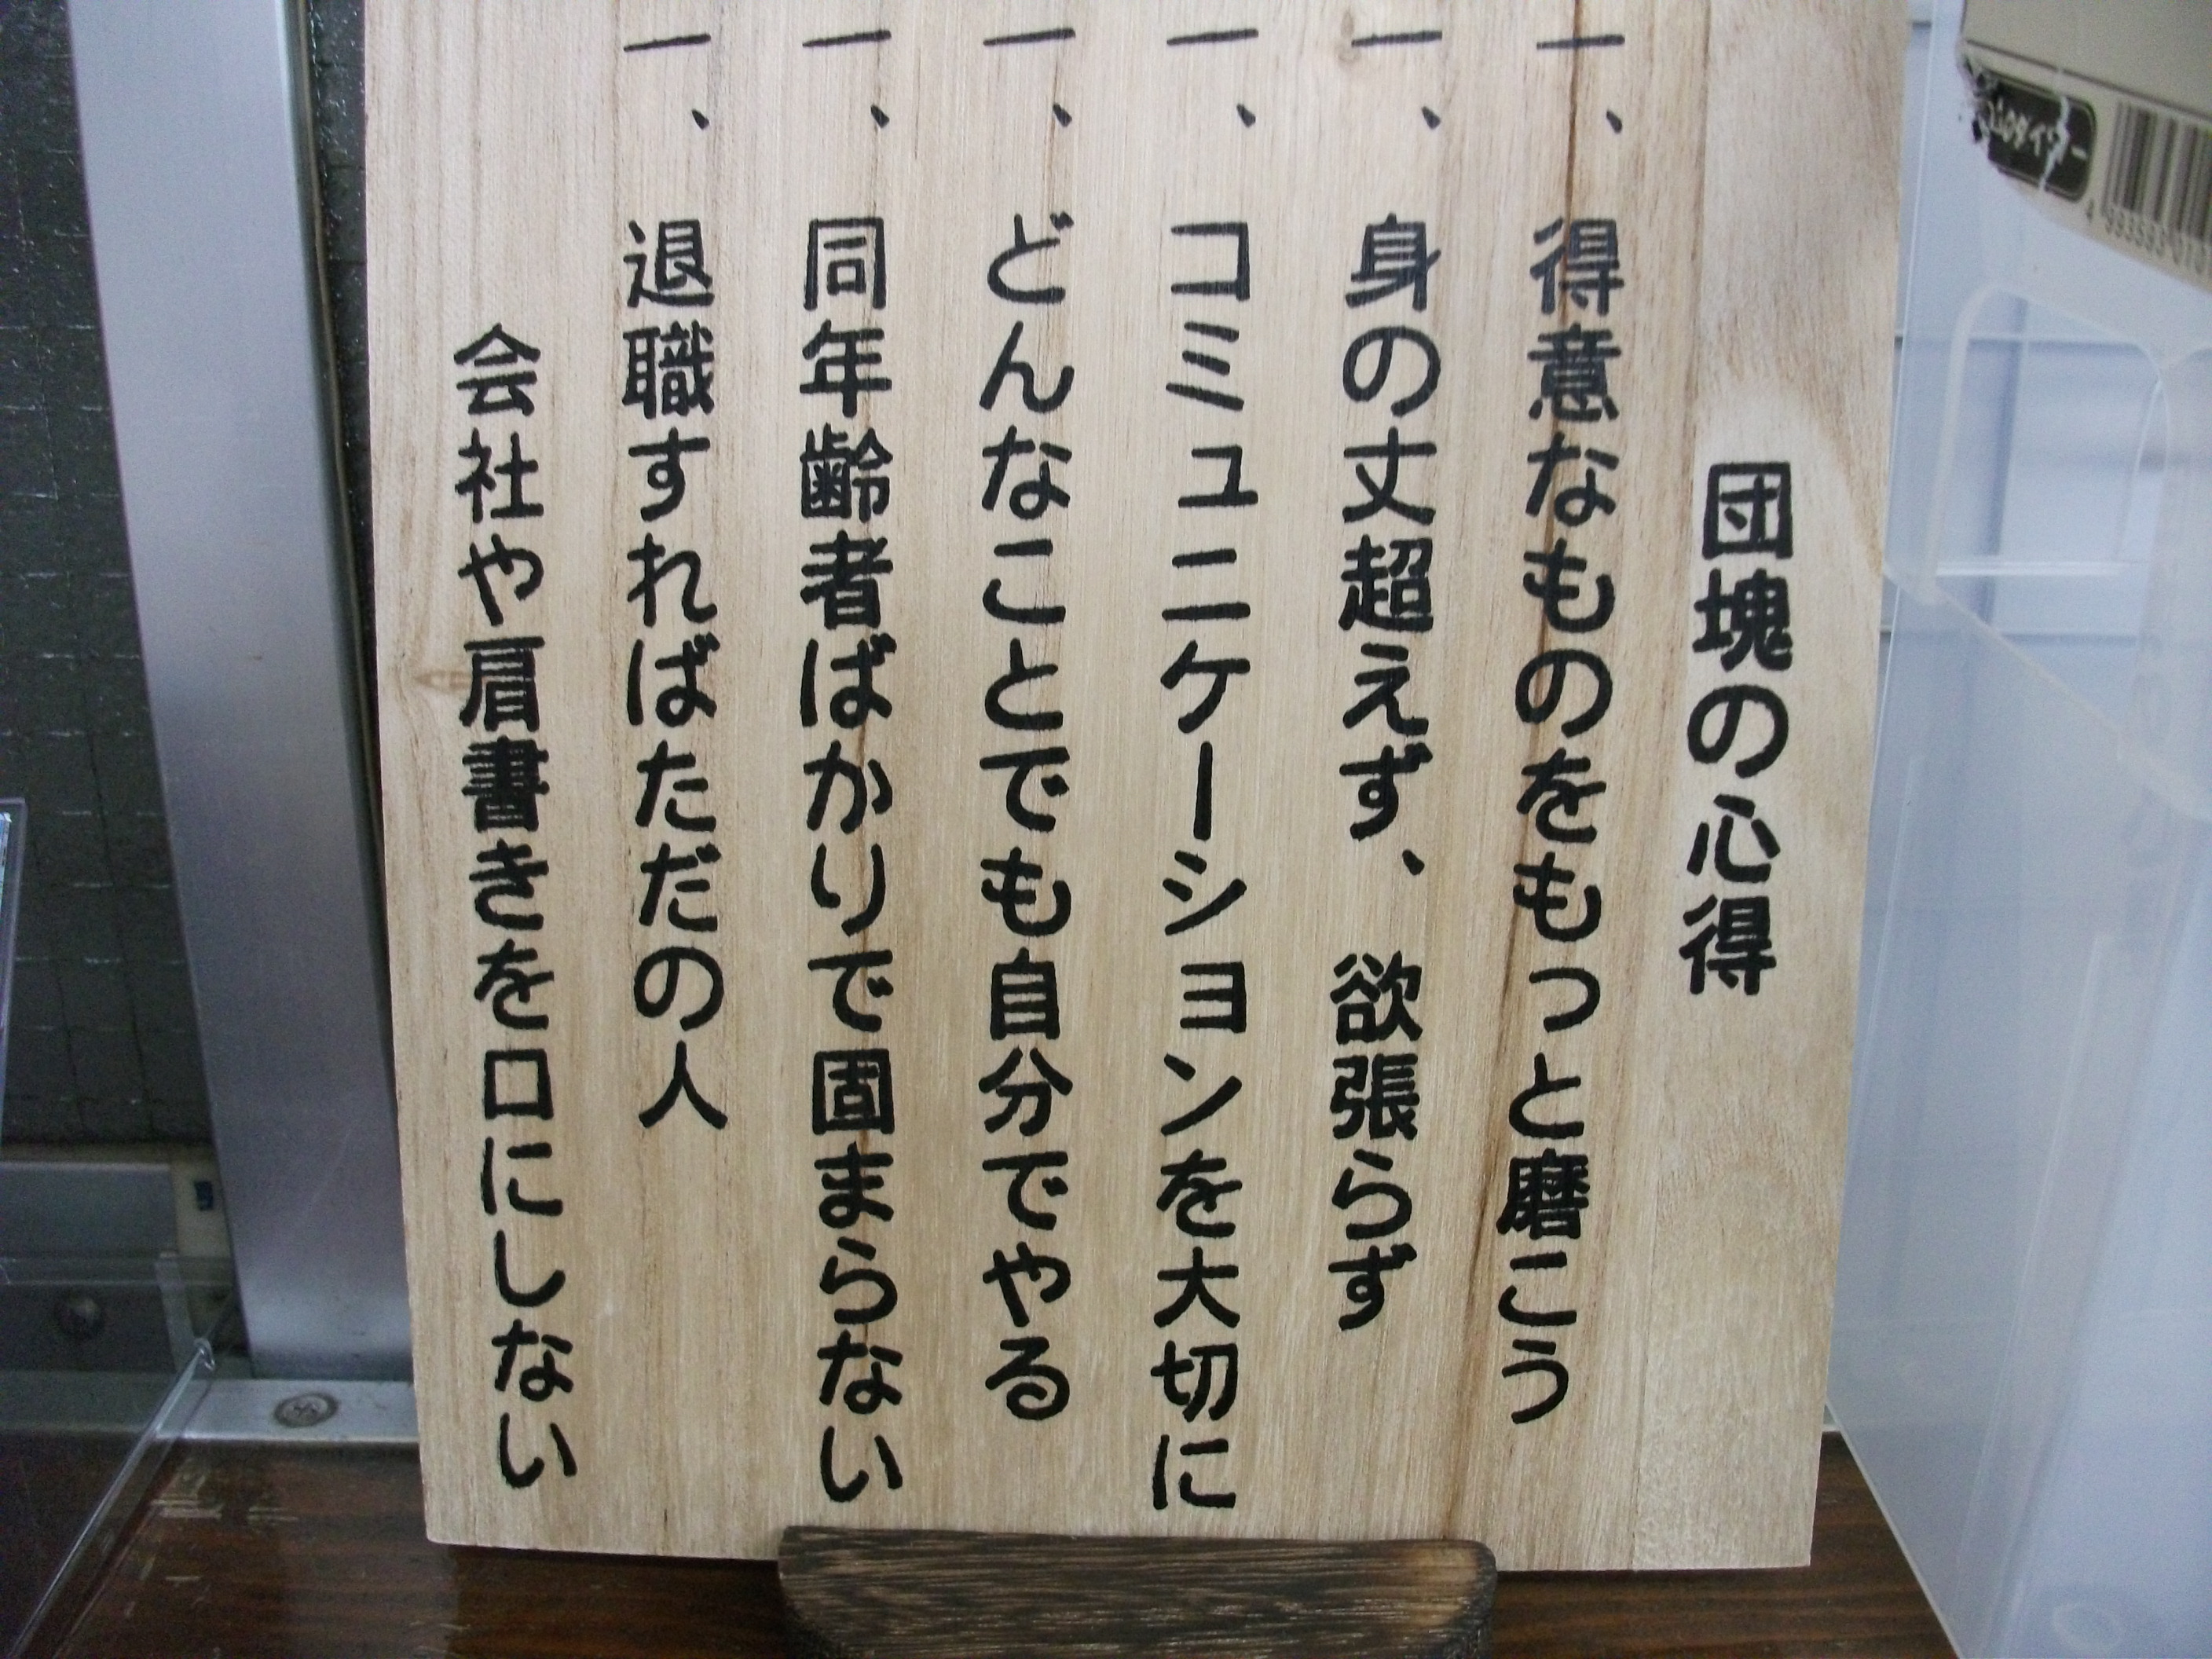 団塊の心得
一、得意なものをもっと磨こう
一、身の丈超えず、欲張らず
一、コミュニケーションを大切に
一、どんなことでも自分でやる
一、同年齢者ばかりで固まらない
一、退職すればただの人
会社や肩書きを口にしない